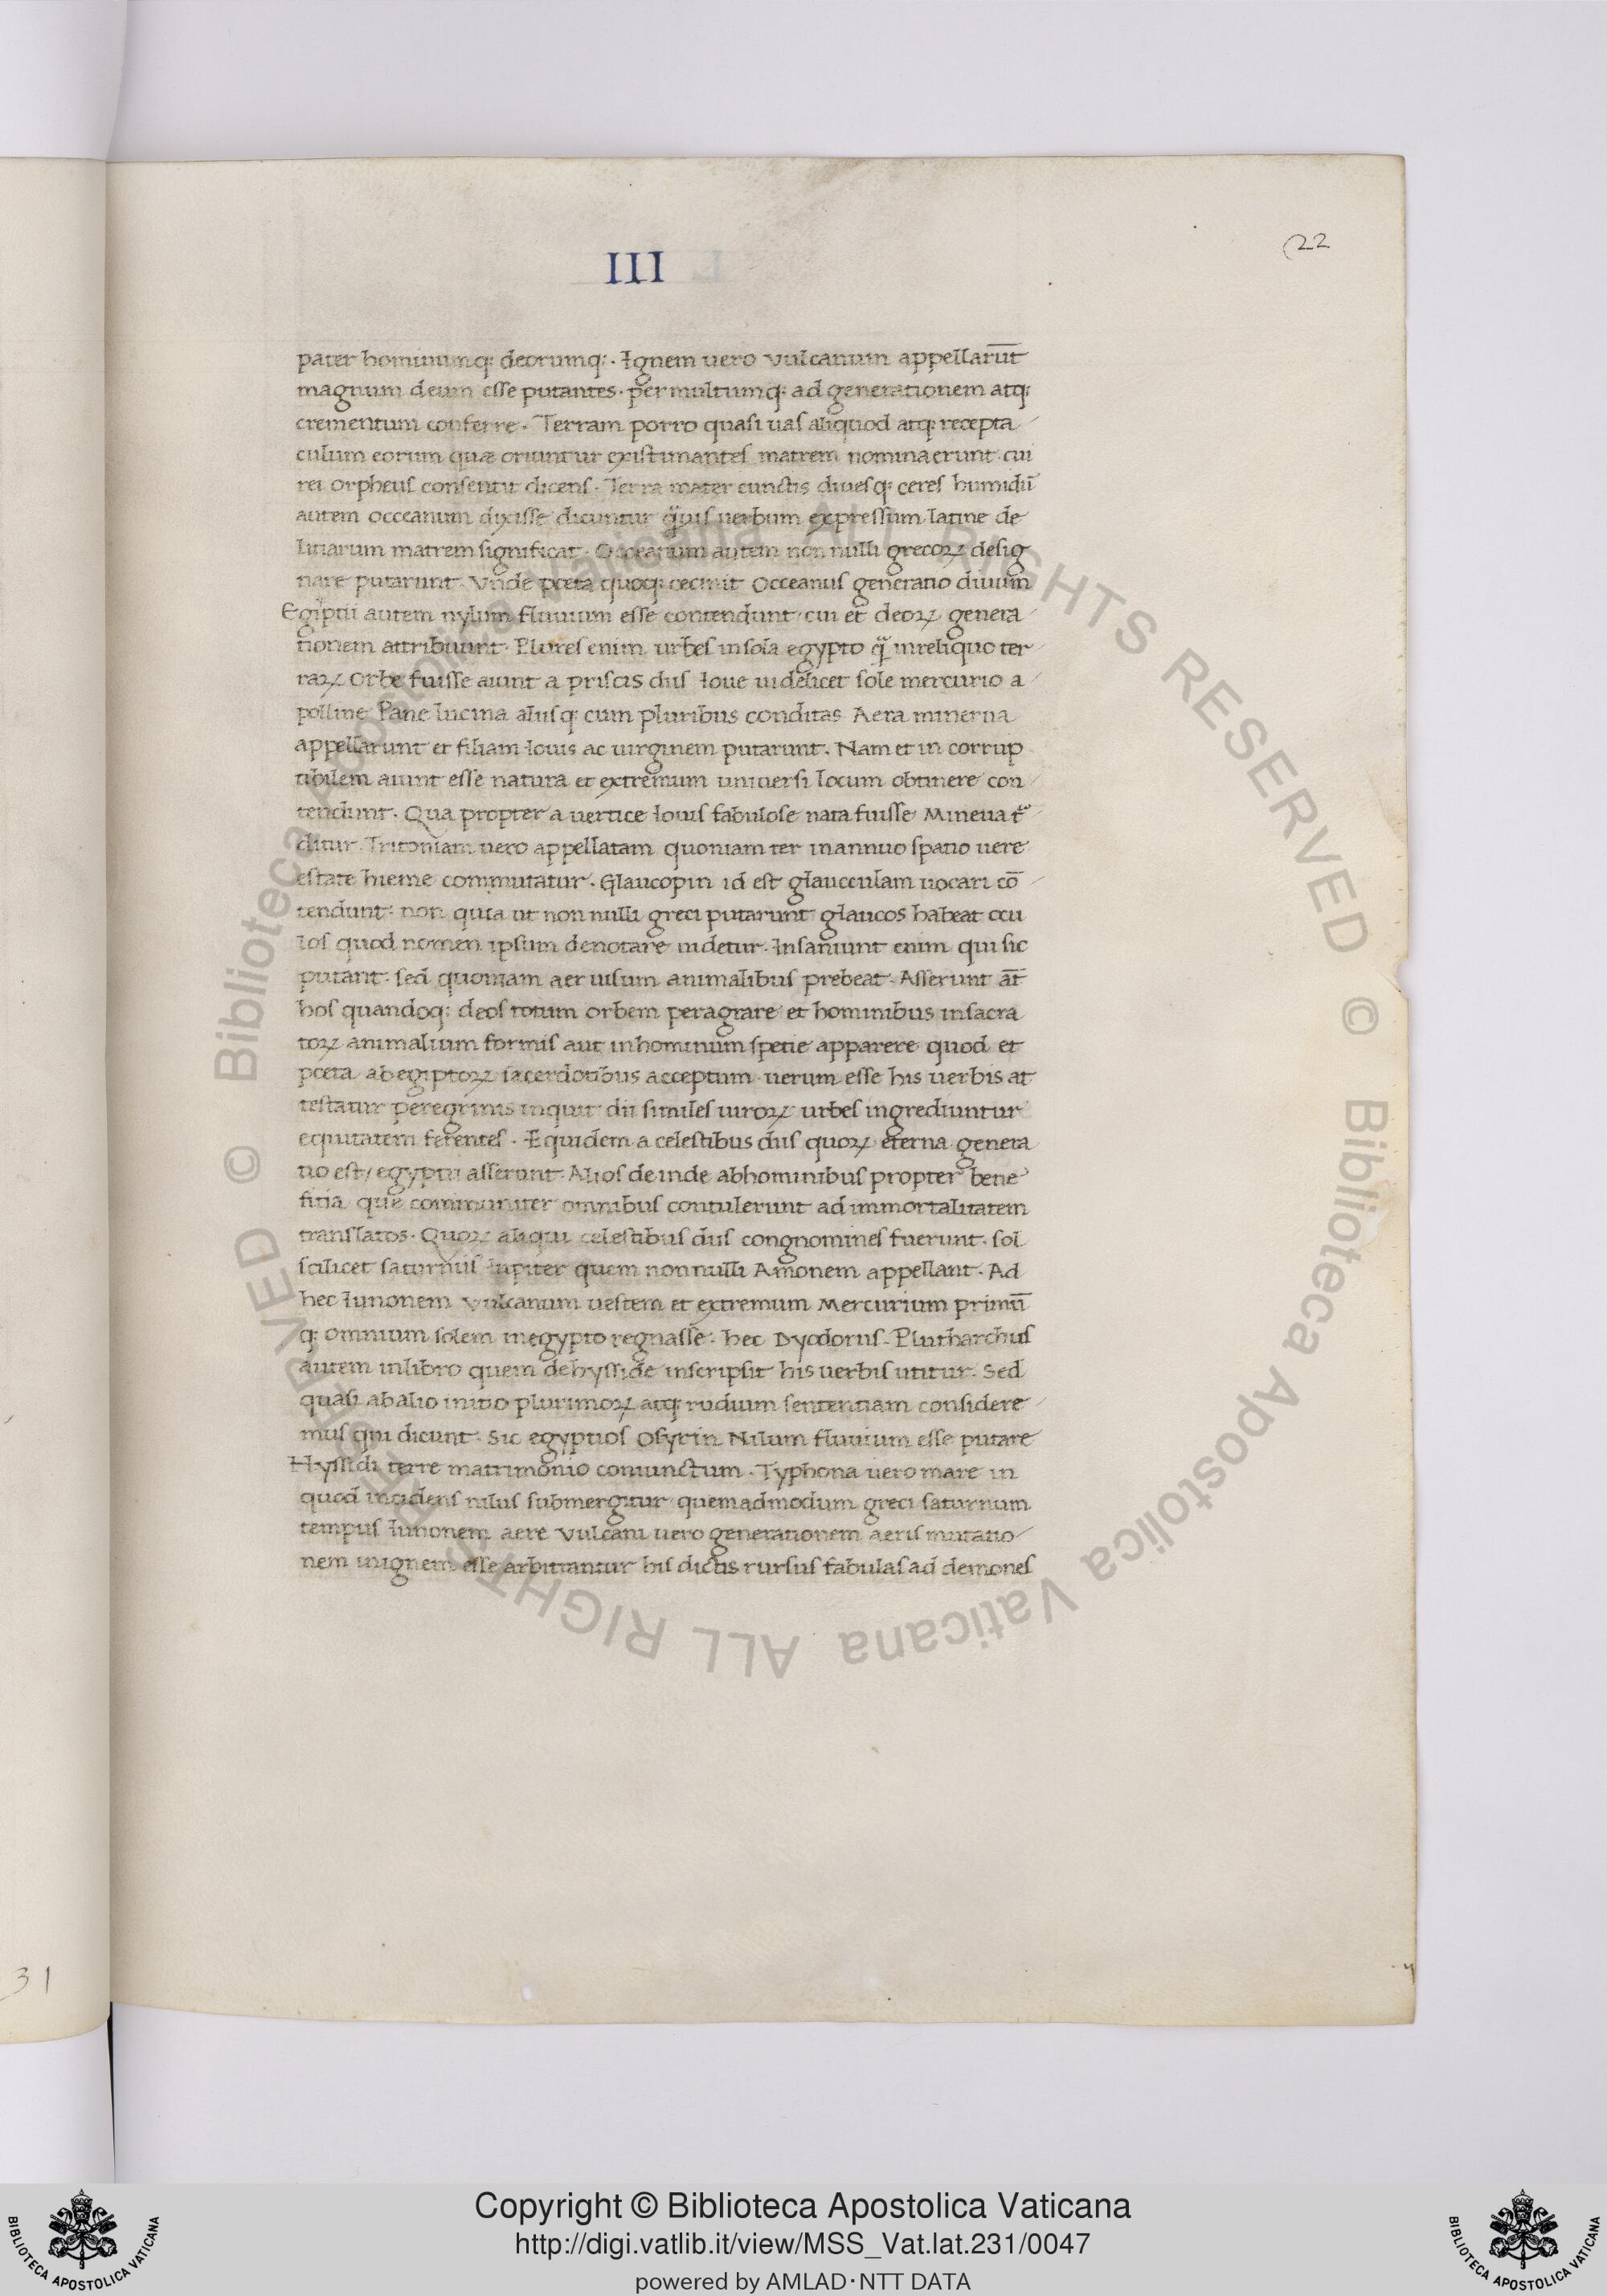 III
22
pater hominumq: deorumq: · Ignem uero vulcanum appellarūt
magnum deum esse putantes · per multumq: ad generationem atq:
crementum conferre · Terram porro quasi uas aliquod atq: recepta
culum eorum quæ oriuntur existimantes matrem nominaerunt · cui
rei orpheus consentit dicens · Terra mater cunctis diuesq: ceres humidū
autem occeanum dixisse dicuntur q̃uis uerbum expressum latine de
litiarum matrem significat · Occeanum autem non nulli grecoꝝ desig
nare putarunt · Vnde poeta quoq: cecinit Occeanus generatio diuum
Egiptii autem nylum fluuium esse contendunt cui et deoꝝ genera
tionem attribuunt · Plures enim urbes in sola egypto q̃ in reliquo ter
raꝝ orbe fuisse aiunt a priscis diis Ioue uidelicet sole mercurio a
polline Pane lucina aliisq: cum pluribus conditas Aera minerna
appellarunt et filiam Iouis ac uirginem putarunt . Nam et in corrup
tibilem aiunt esse natura et extremum uniuersi locum obtinere con
tendunt · Qua propter a uertice Iouis fabulose nata fuisse Mineua
ditur Tritoniam uero appellatam quoniam ter in annuo spatio uere
estate hieme commutatur . Glaucopin id est glaucculam uocari cō
tendunt · non quia ut non nulli greci putarunt glaucos habeat ocu
los quod nomen ipsum denotare uidetur · Insaniunt enim qui sic
putant · sed quoniam aer uisum animalibus prebeat · Asserunt aūt
hos quandoq: deos totum orbem peragrare et hominibus in sacra
toꝝ animalium formis aut in hominum spetie apparere quod et
poeta ab egiptoꝝ sacerdotibus acceptum uerum esse his uerbis at
testatur peregrinis inquit dii similes uiroꝝ urbes ingrediuntur
equitatem ferentes · Equidem a celestibus diis quoꝝ eterna genera
tio est / egyptii asserunt · Alios deinde ab hominibus propter bene
fitia que communiter omnibus contulerunt ad immortalitatem
translatos · Quoꝝ aliqui celestibus diis congnomines fuerunt · sol
scilicet saturnus Iupiter quem non nulli Amonem appellant · Ad
hec Iunonem Vulcanum uestem et extremum Mercurium primū
q: omnium solem in egypto regnasse · hec Dyodorus · Plutharchus
autem in libro quem de hysside inscripsit his uerbis utitur · Sed
quasi ab alio initio plurimoꝝ atq: rudium sententiam considere
mus qui dicunt · Sic egyptios Osyrin Nilum fluuium esse putare
Hyssidi terre matrimonio coniunctum · Typhona uero mare in
quod incidens nilus submergitur quemadmodum greci saturnum
tempus Iunonem aere Vulcani uero generationem aeris mutatio
nem in ignem esse arbitrantur his dictis rursus fabulas ad demones
31
© Biblioteca Apostolica Vaticana ALL RIGHTS RESERVED © Biblioteca Apostolica Vaticana ALL RIGHTS RESERVED
Copyright © Biblioteca Apostolica Vaticana
http://digi.vatlib.it/view/MSS_Vat.lat.231/0047
powered by AMLAD·NTT DATA
BIBLIOTECA APOSTOLICA VATICANA
BIBLIOTECA APOSTOLICA VATICANA